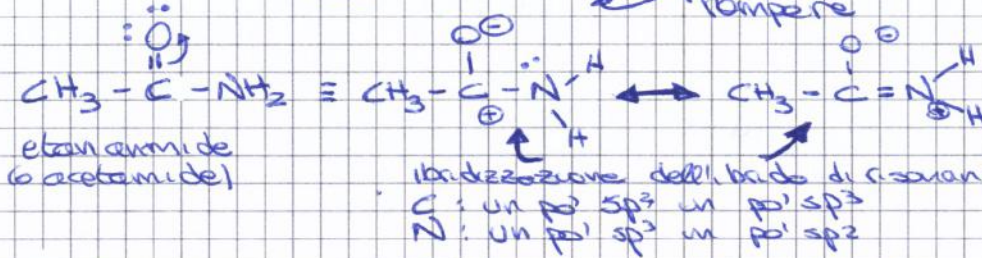 rompere
CH₃ - C - NH₂ ≡ CH₃ - C - N H H ↔ CH₃ - C = N H H
O O ⊖ O ⊖
⊕ ⊕
etanammide
(o acetamide)
ibridizzazione dell'ibrido di risonan
C : un po' sp² un po' sp³
N : un po' sp³ un po' sp2